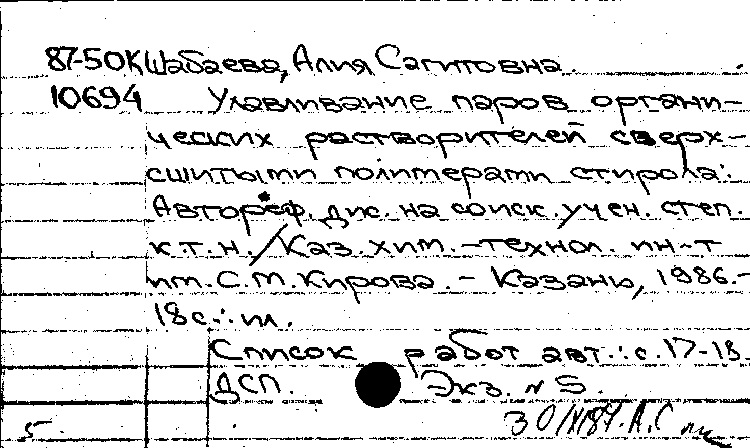 87-50К Шабаева, Алия Сагитовна.
10694 Улавливание паров органи-
ческих растворителей сверх-
сшитыми полимерами стирола:
Автореф. дис. на соиск. учен. степ.
к.т.н. / Каз. хим.-технол. ин-т
им. С.М. Кирова. - Казань, 1986.-
18 с.: ил.
Список работ авт.: с. 17-18.
ДСП. Экз. N 5.
5.